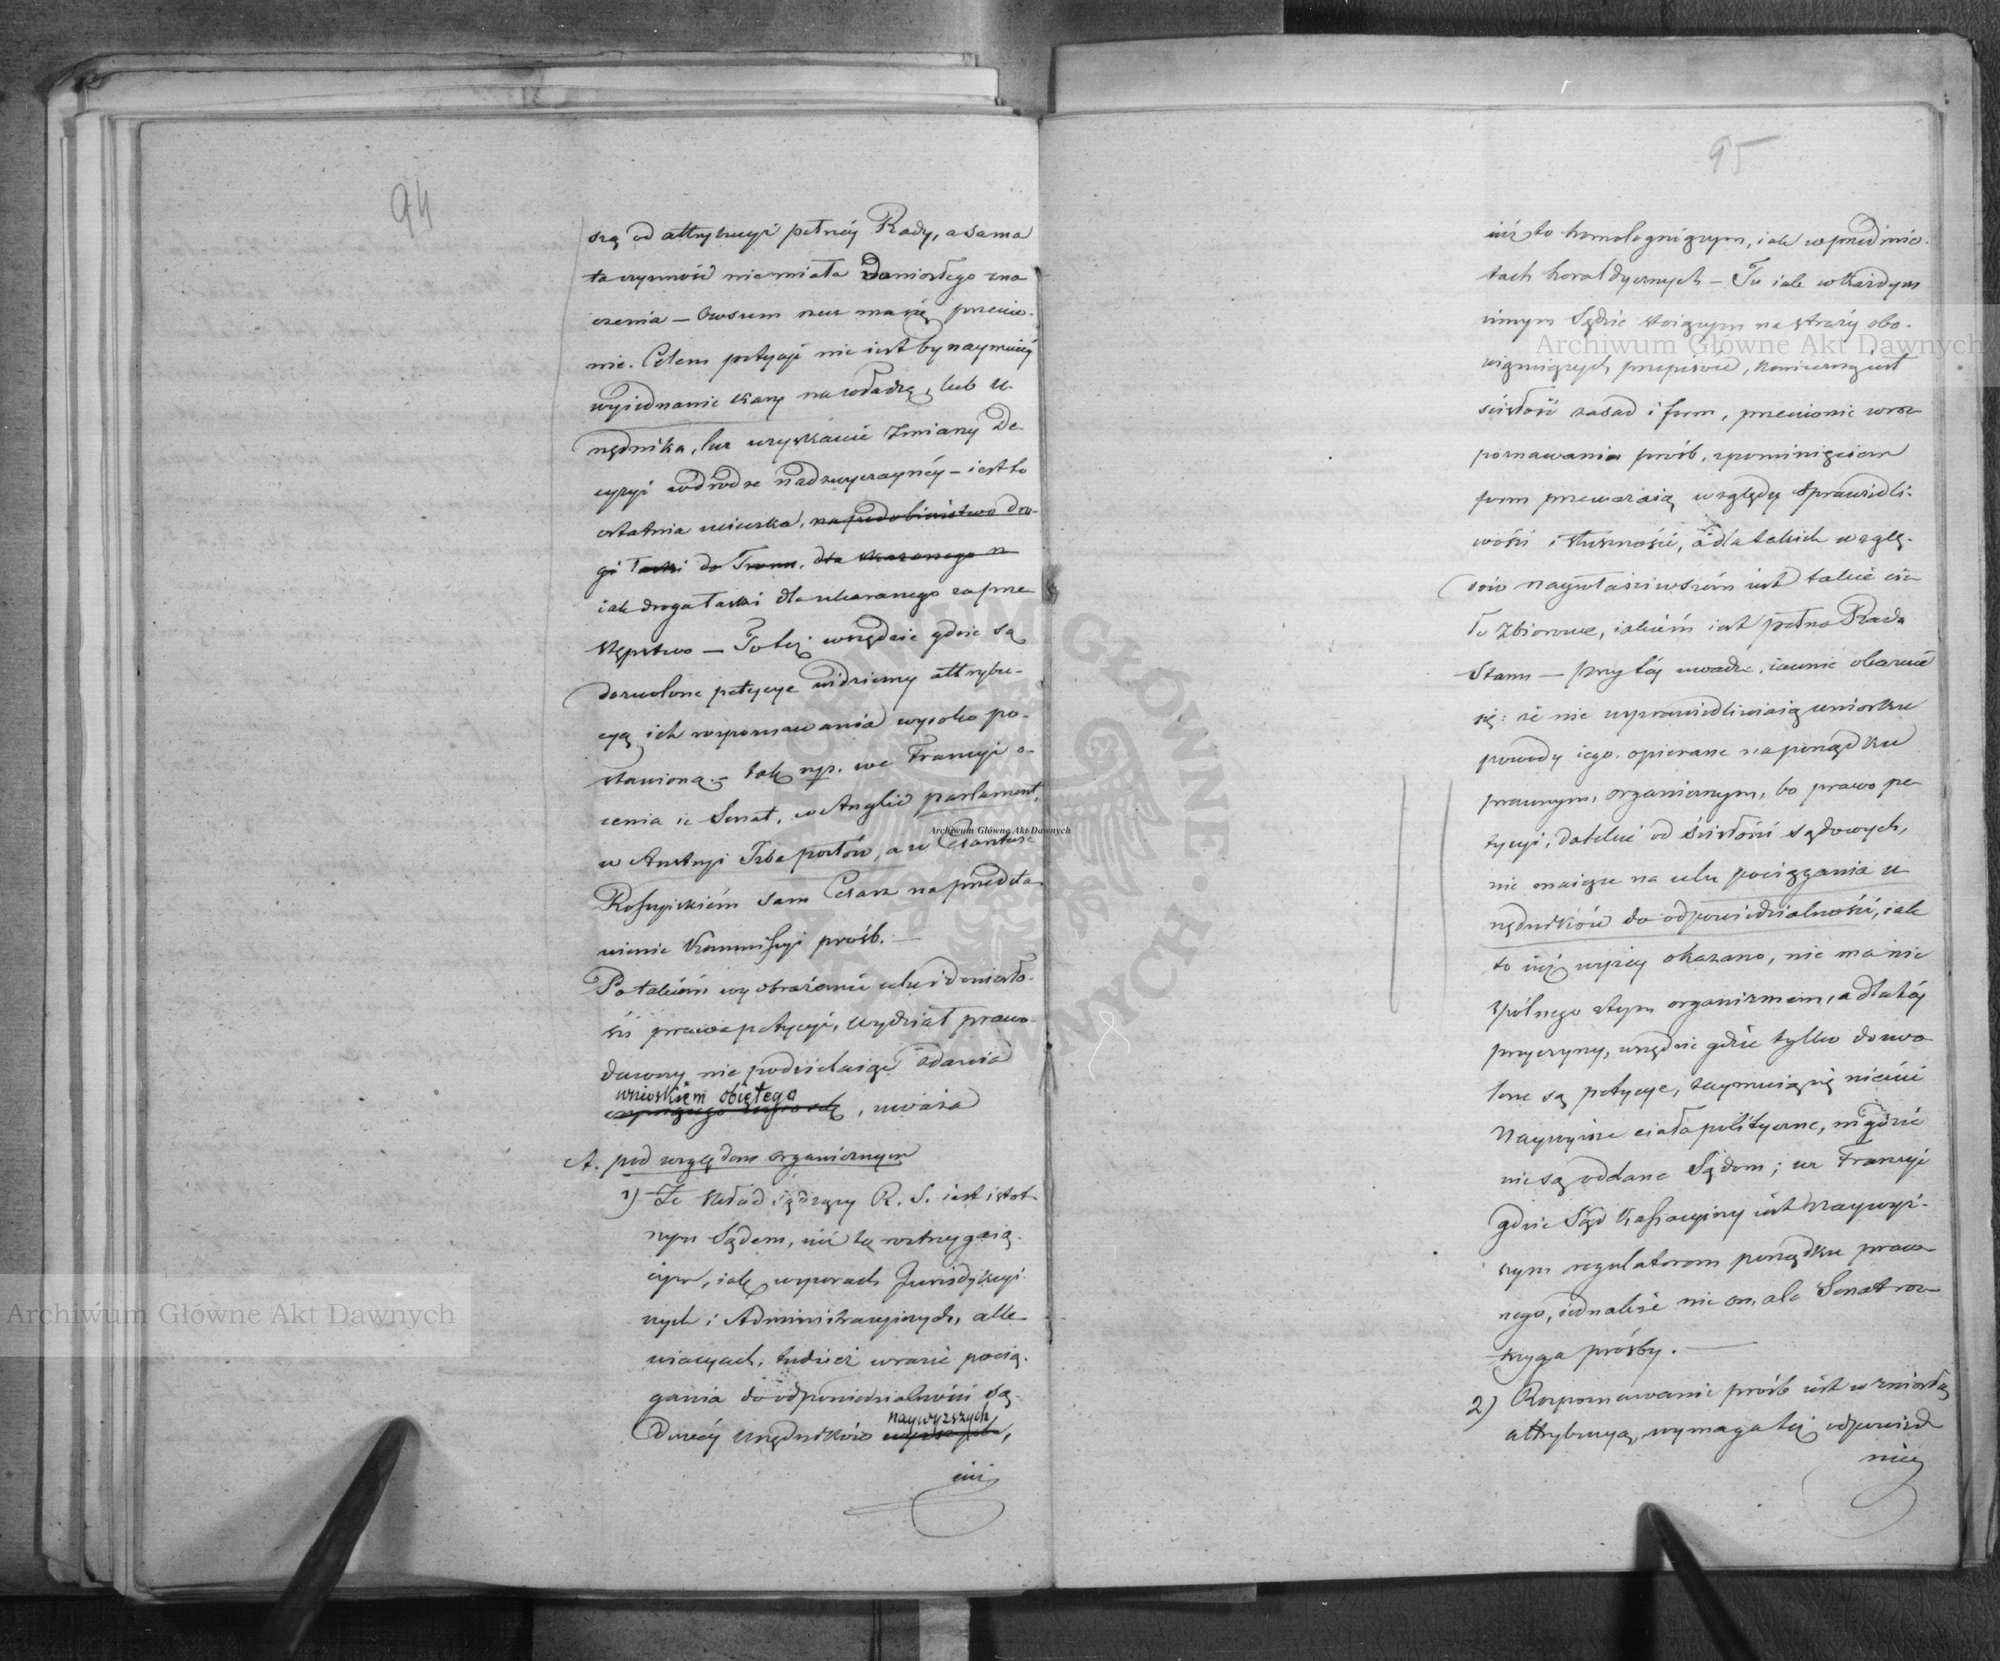 94
szą od attrybucyi pełnéy Rady, a sama
ta czynność nie miała doniosłego zna
czenia — Owszem rzecz ma się przeciw-
nie. Celem petycyi nie iest bynaymniéy
wyiednanie kary na władzę, lub u-
rzędnika, lecz uzyskanie zmiany De
cyzyi w drodze nadzwyczaynéy — iest to
ostatnia ucieczka, na podobieństwo dro-
gi łaski do Tronu, dla skazanego
iak droga łaski dla ukaranego za prze
stępstwo — To téż wszędzie gdzie są
dozwolone petycye widziemy attrybu-
cyą ich rozpoznawania wysoko po-
stawioną. — tak np. we Francyi o-
cenia ie Senat, w Anglii parlament,
w Austryi Izba posłów, a w Cesarstwie
Rossyiskiém sam Cesarz na przedsta
wienie Kommissyi próśb. —
Po takiém wyobrażeniu celu i doniosło-
ści prawa petycyi, wydział prawo-
dawczy nie podzielaiąc zdania
wnioskiem obiętego
, uważa
A. pod względem organicznym
1) Że skład sądzący R. S. iest istot
nym Sądem, iuż to roztrzygaią-
cym, iak w sporach Jurisdykcyi-
nych i Administracyinych, alle
wiacyach, tudzież w razie pocią-
gania do odpowiedzialności są-
dowéy urzędników
naywyższych
,
iuż
95
iuż to homologuiącym, iak w przedmio-
tach heraldycznych — Tu iak w każdym
innym Sądzie stoiącym na straży obo-
wiązuiących przepisów, konieczną iest
ścisłość zasad i form, przeciwnie w roz
poznawaniu próśb, z pominięciem
form przeważaią względy sprawiedli-
wości i słuszności, a dla takich wzglę-
dów naywłaściwszém iest takie cia
ło zbiorowe, iakiém iest pełna Rada
Stanu — przy téy uwadze, iawnie okazuie
się: że nie usprawiedliwiaią wniosku
powody iego, opierane na porządku
prawnym, organicznym, bo prawo pe
tycyi, dalekie od ścisłości sądowych,
nie maiące na celu pociągania u
rzędników do odpowiedzialności, iak
to iuż wyżéy okazano, nie ma nic
spólnego z tym organizmem, a dla téy
przyczyny, wszędzie gdzie tylko dozwo
lone są petycye, zaymuią się niemi
Naywyższe ciała polityczne, nigdzie
nie są oddane Sądom; we Francyi
gdzie Sąd Kassacyiny iest naywyż-
szym regulatorem porządku praw
nego, iednakże nie on, ale Senat roz-
trzyga prośby. —
2) Rozpoznawanie próśb iest wzniosłą
attrybucyą, wymaga téż odpowied
niéy
Archiwum Główne Akt Dawnych
Archiwum Główne Akt Dawnych
Archiwum Główne Akt Dawnych